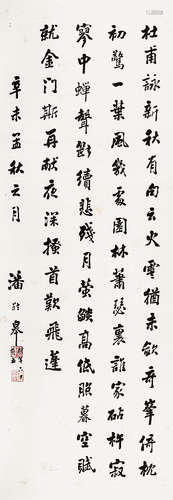 杜甫詠新秋有句云火雲猶未斂奇峯倚枕
初驚一葉風幾處園林蕭瑟裏誰家砧杵寂
寥中蟬聲斷續悲殘月螢燄高低照暮空賦
就金门期再献夜深搔首歎飛蓬
辛未孟秋之月
潘齡皋